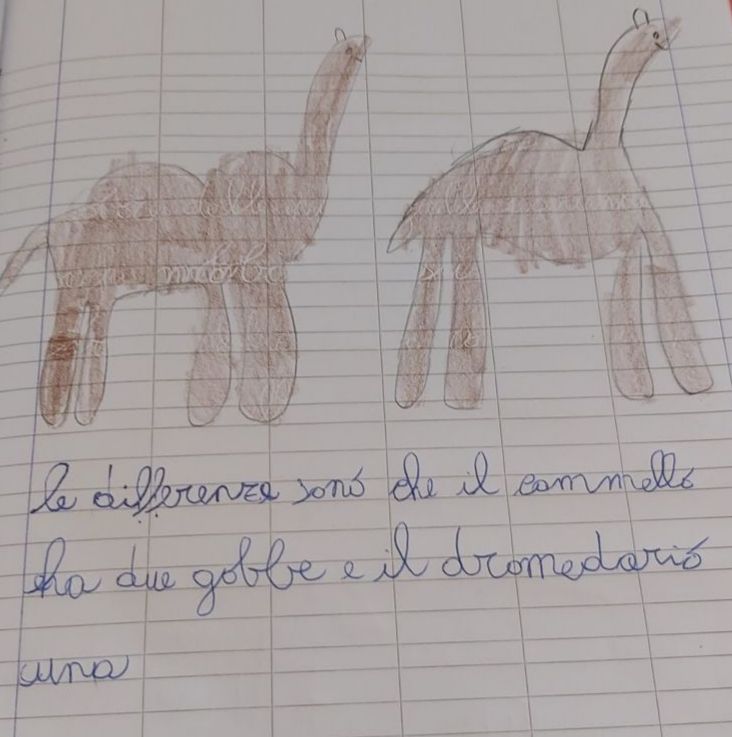 le differenze sono che il cammello
ha due gobbe e il dromedario
una